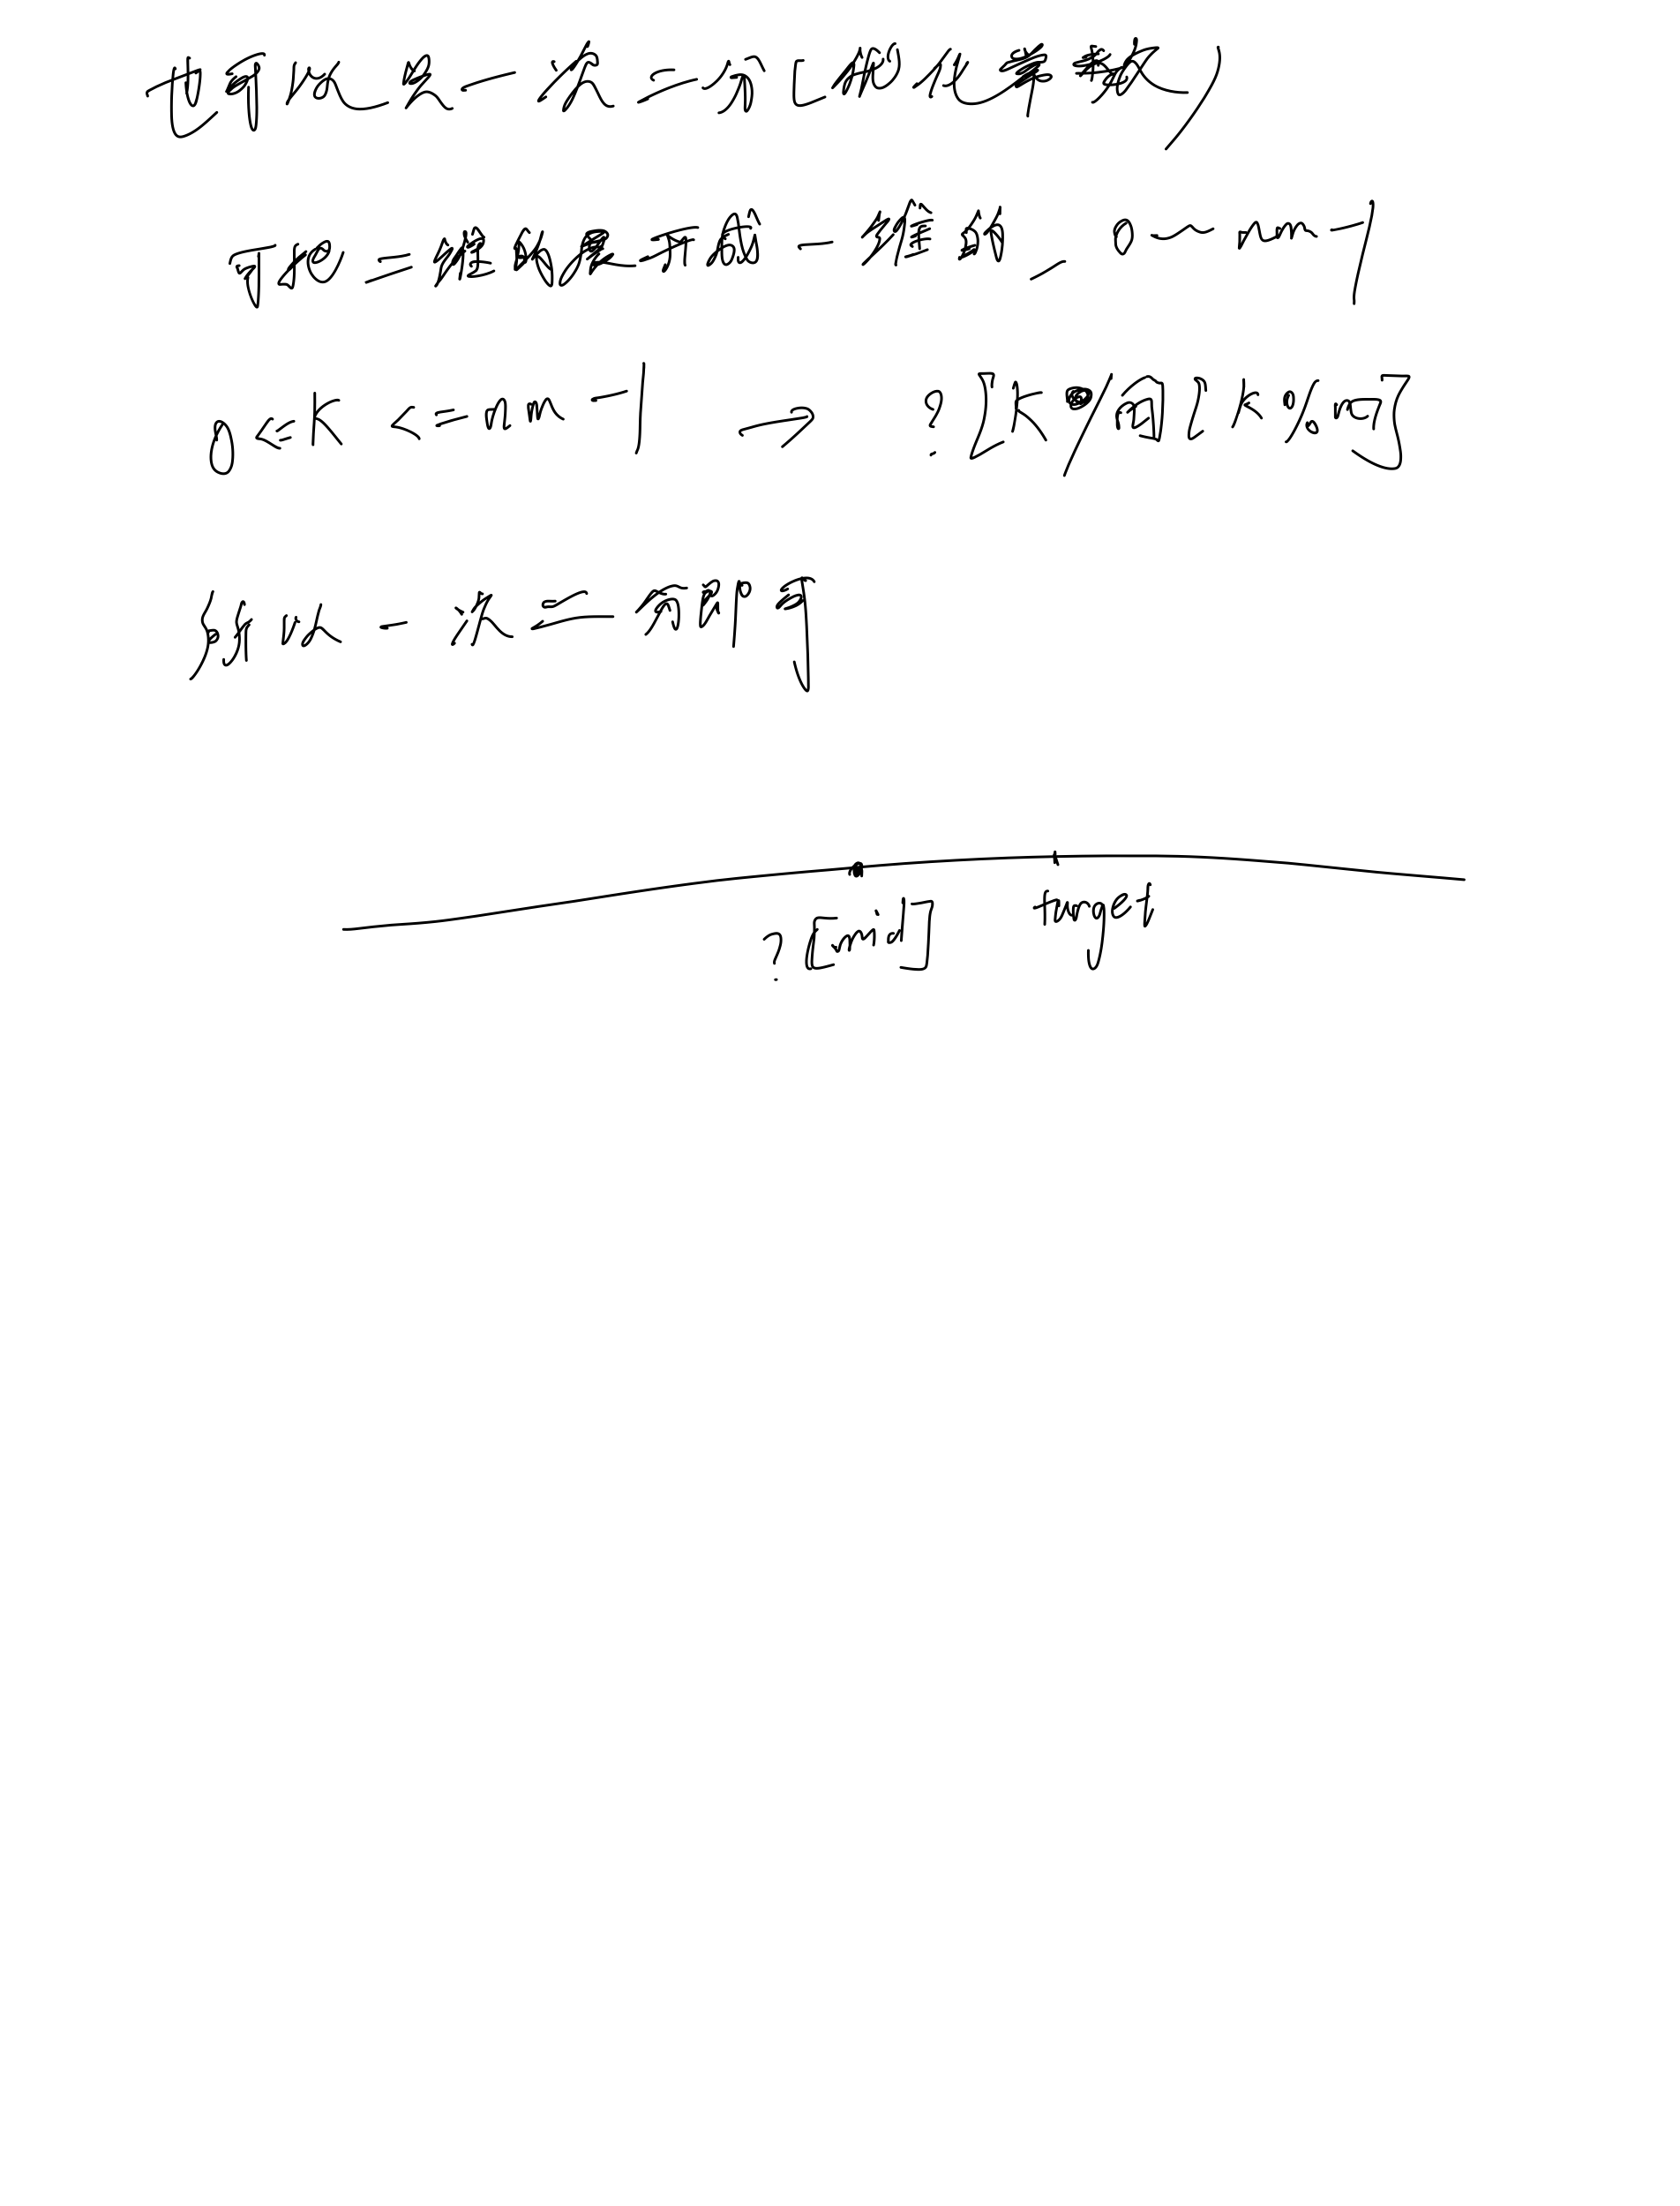 也可以是一次二分(优化常数)
可把二维的展开成一维的, 0~nm-1
0<=K <=nm-1 → ?[K/n][K%n]
所以一次二分即可
?[mid] target